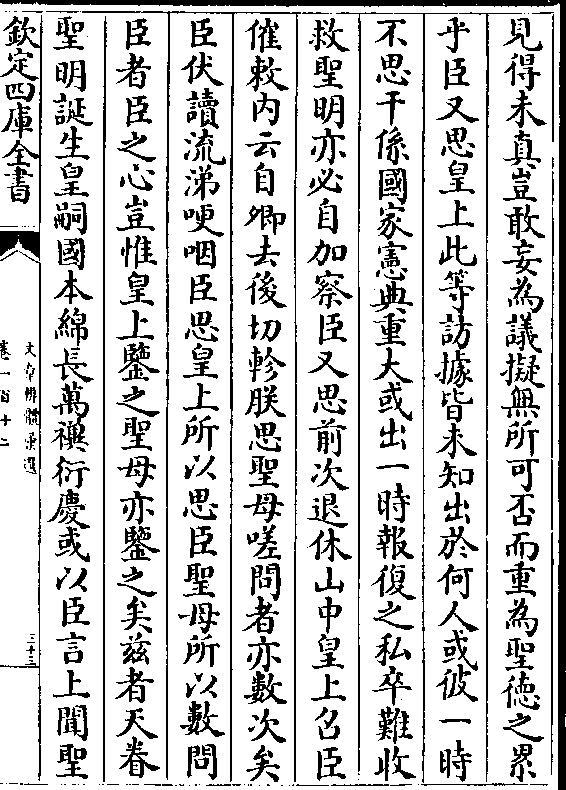 見得未真豈敢妄為議擬無所可否而重為聖徳之累
乎臣又思皇上此等訪據皆未知出於何人或彼一時
不思干係國家憲典重大或出一時報復之私卒難收
救聖明亦必自加察臣又思前次退休山中皇上召臣
催敕内云自卿去後切軫朕思聖母嗟問者亦數次矣
臣伏讀流涕哽咽臣思皇上所以思臣聖母所以數問
臣者臣之心豈惟皇上鑒之聖母亦鑒之矣兹者天眷
聖明誕生皇嗣國本綿長萬禩衍慶或以臣言上聞聖
欽定四庫全書
文章辨體彚選
卷一百十二
三十三